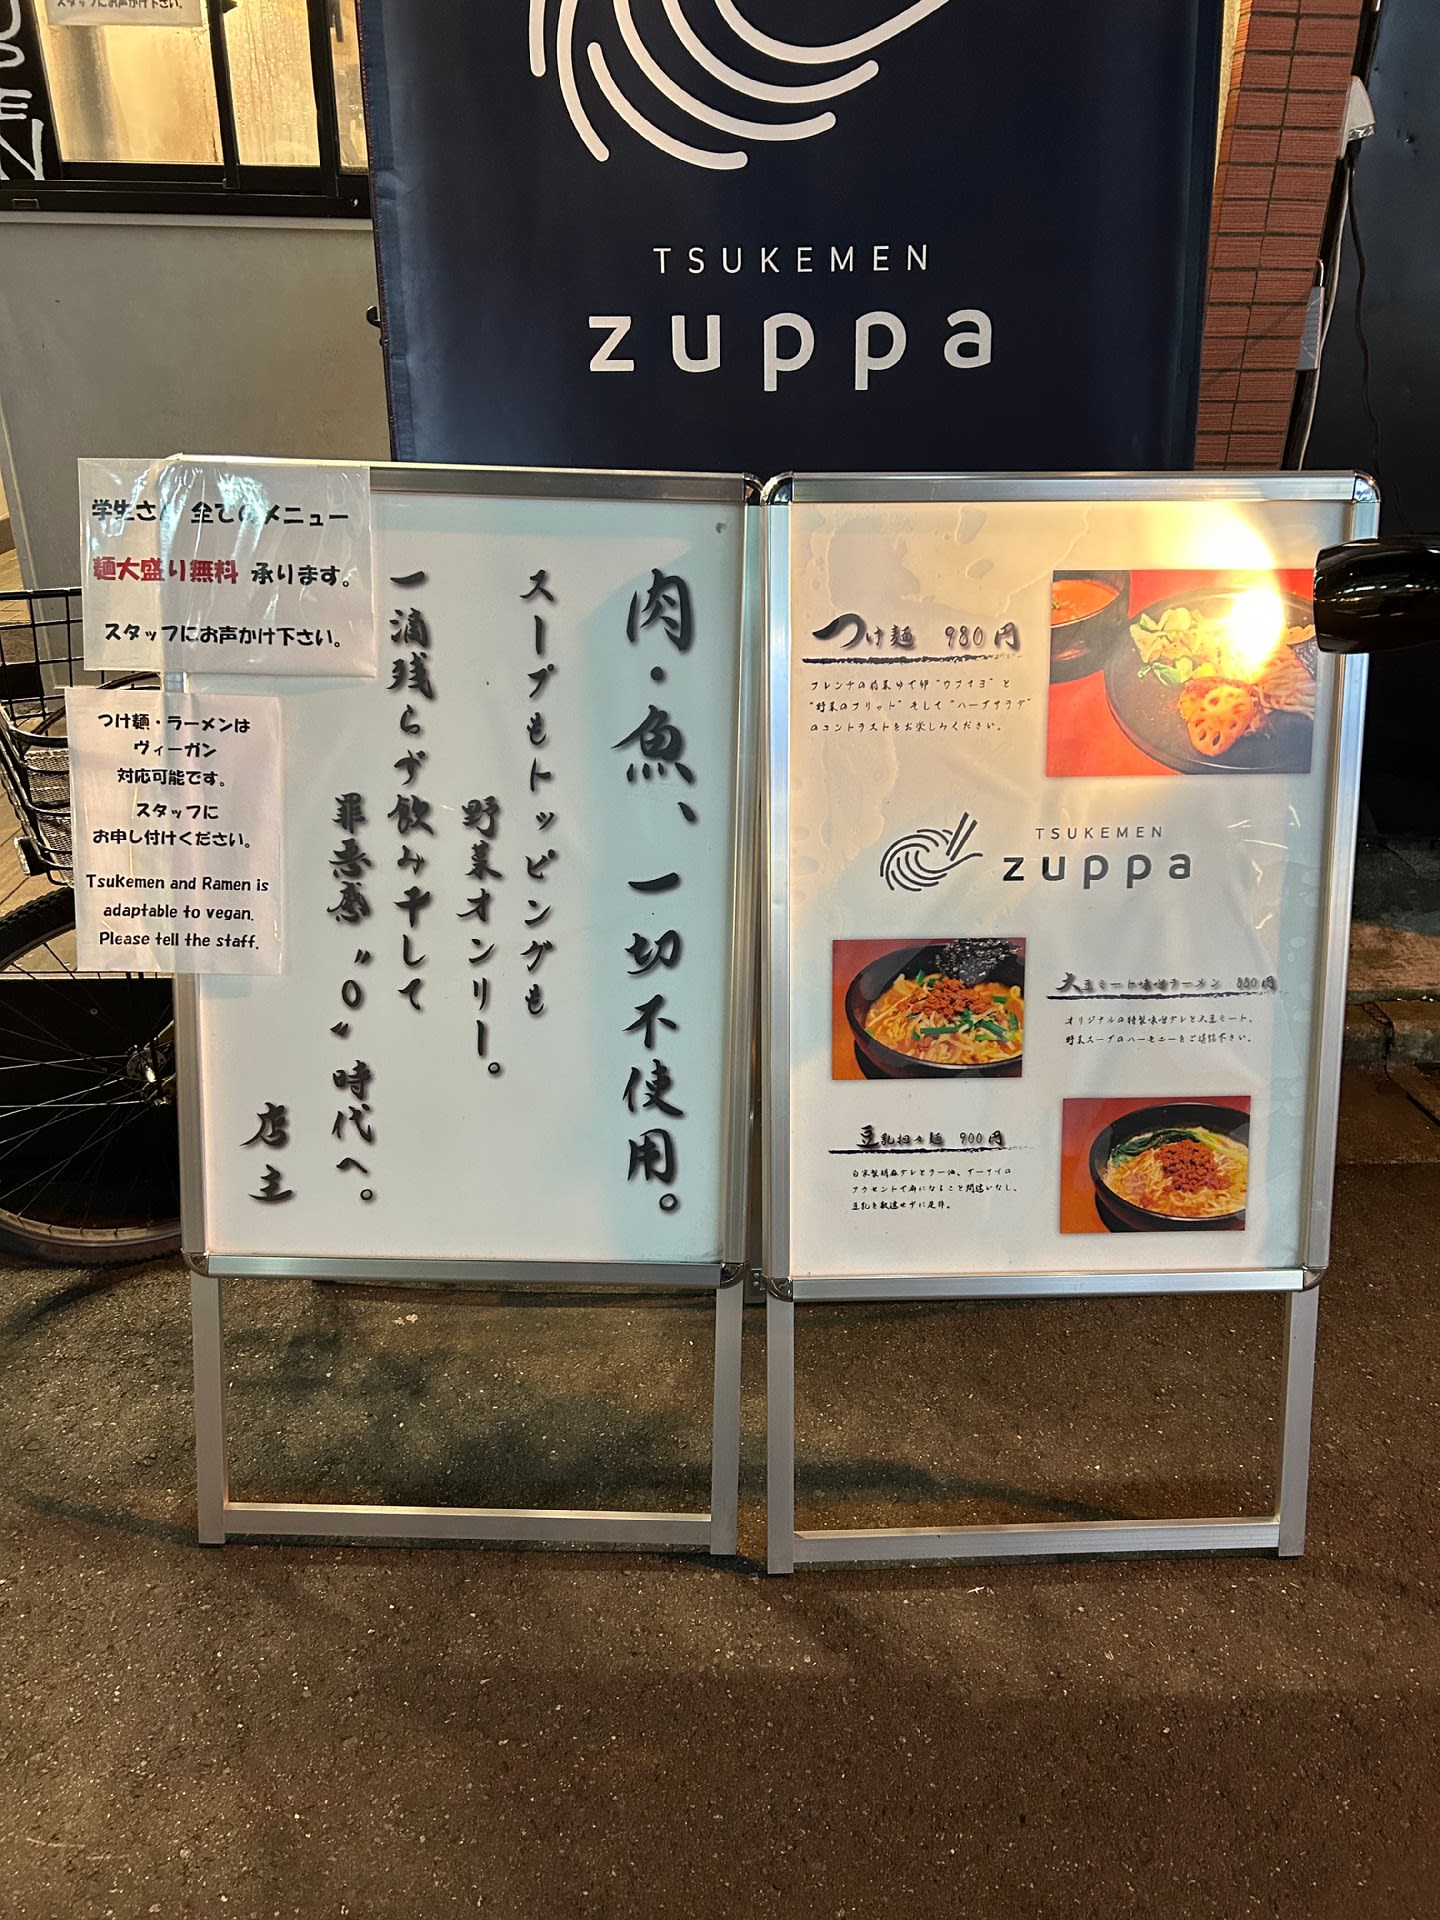 スタッフにお声かけ下さい。
TSUKEMEN
zuppa
学生さん 全てのメニュー
麺大盛り無料 承ります。
スタッフにお声かけ下さい。
つけ麺・ラーメンは
ヴィーガン
対応可能です。
スタッフに
お申し付けください。
Tsukemen and Ramen is
adaptable to vegan.
Please tell the staff.
肉・魚、一切不使用。
スープもトッピングも
野菜オンリー。
一滴残らず飲み干して
罪悪感〝0〟時代へ。
店主
つけ麺 980円
フレンチの前菜ゆで卵"ウフマヨ"と
"野菜のフリット"そして"ハーブサラダ"
のコントラストをお楽しみください。
TSUKEMEN
zuppa
大豆ミート味噌ラーメン 880円
オリジナルの特製味噌ダレと大豆ミート、
野菜スープのハーモニーをご堪能下さい。
豆乳担々麺 900円
自家製胡麻ダレとラー油、ザーサイの
アクセントで癖になること間違いなし。
豆乳を飲逃せずに是非。